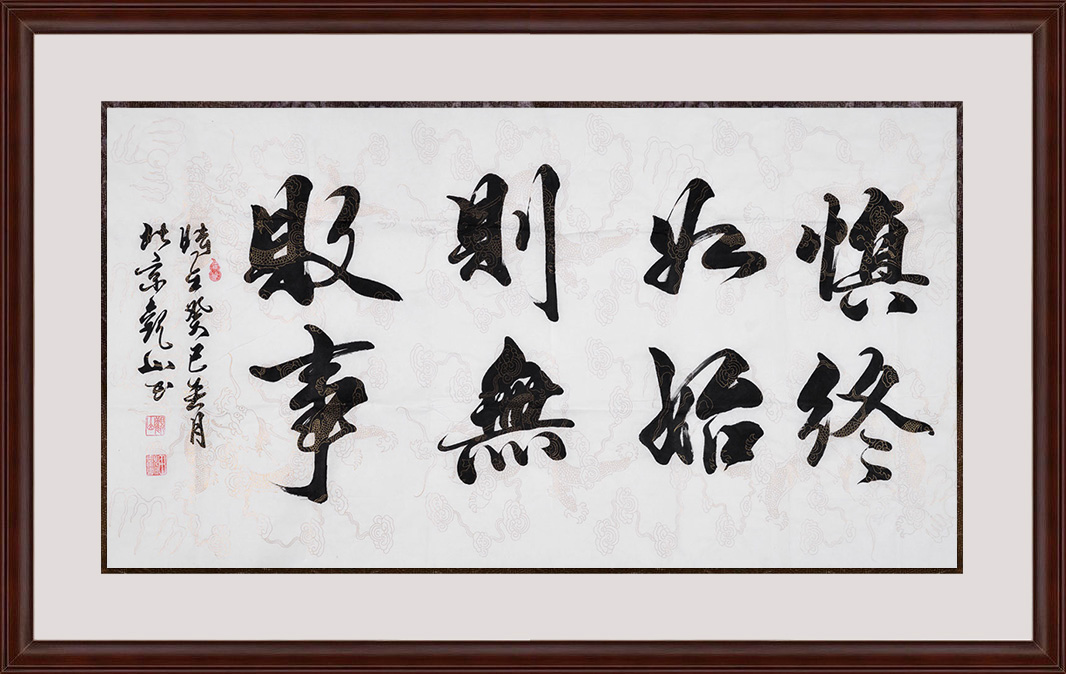 慎終
如始
則無
敗事
時在癸巳春月
北京山书